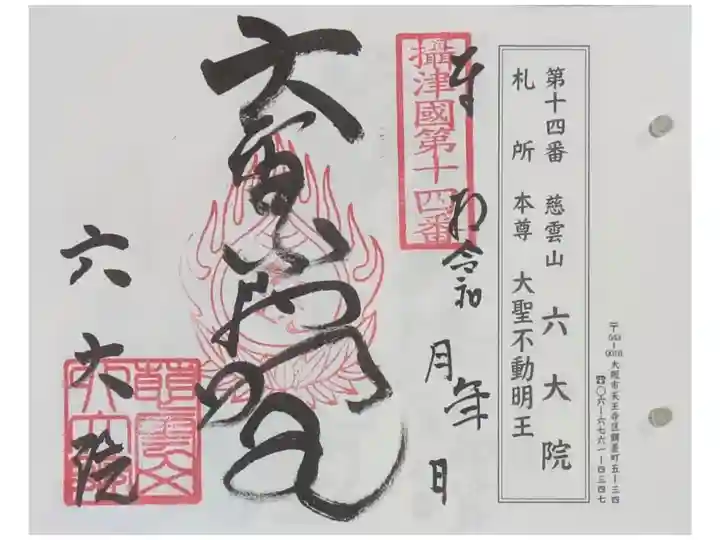 第十四番 慈雲山 六大院
札所 本尊 大聖不動明王
〒543-0016 大阪市天王寺区餌差町五-三四
☎〇六-六七六一-四三四七
攝津國第十四番
令和 年 月 日
六大院